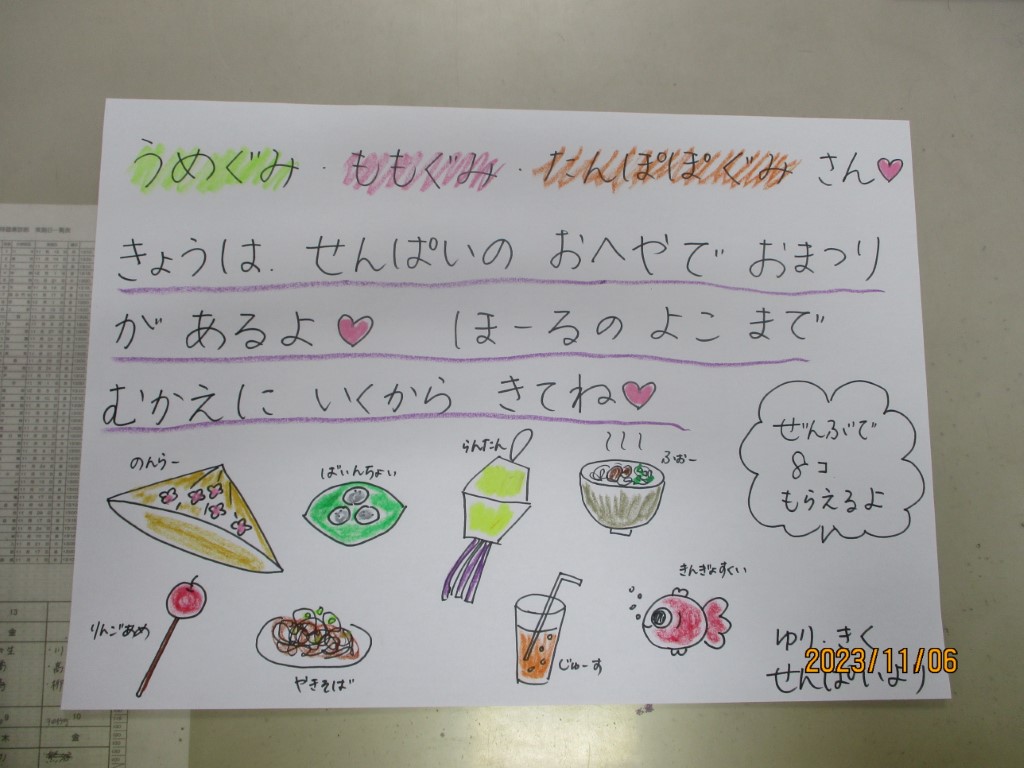 うめぐみ・ももぐみ・たんぽぽぐみ さん
きょうは、せんぱいの おへやで おまつり
が あるよ ほーるの よこ まで
むかえに いくから きてね
ぜんぶで
8コ
もらえるよ
のんらー
ばいんちょい
らんたん
ふぉー
りんごあめ
やきそば
じゅーす
きんぎょすくい
ゆり・きく
せんぱいより
2023/11/06